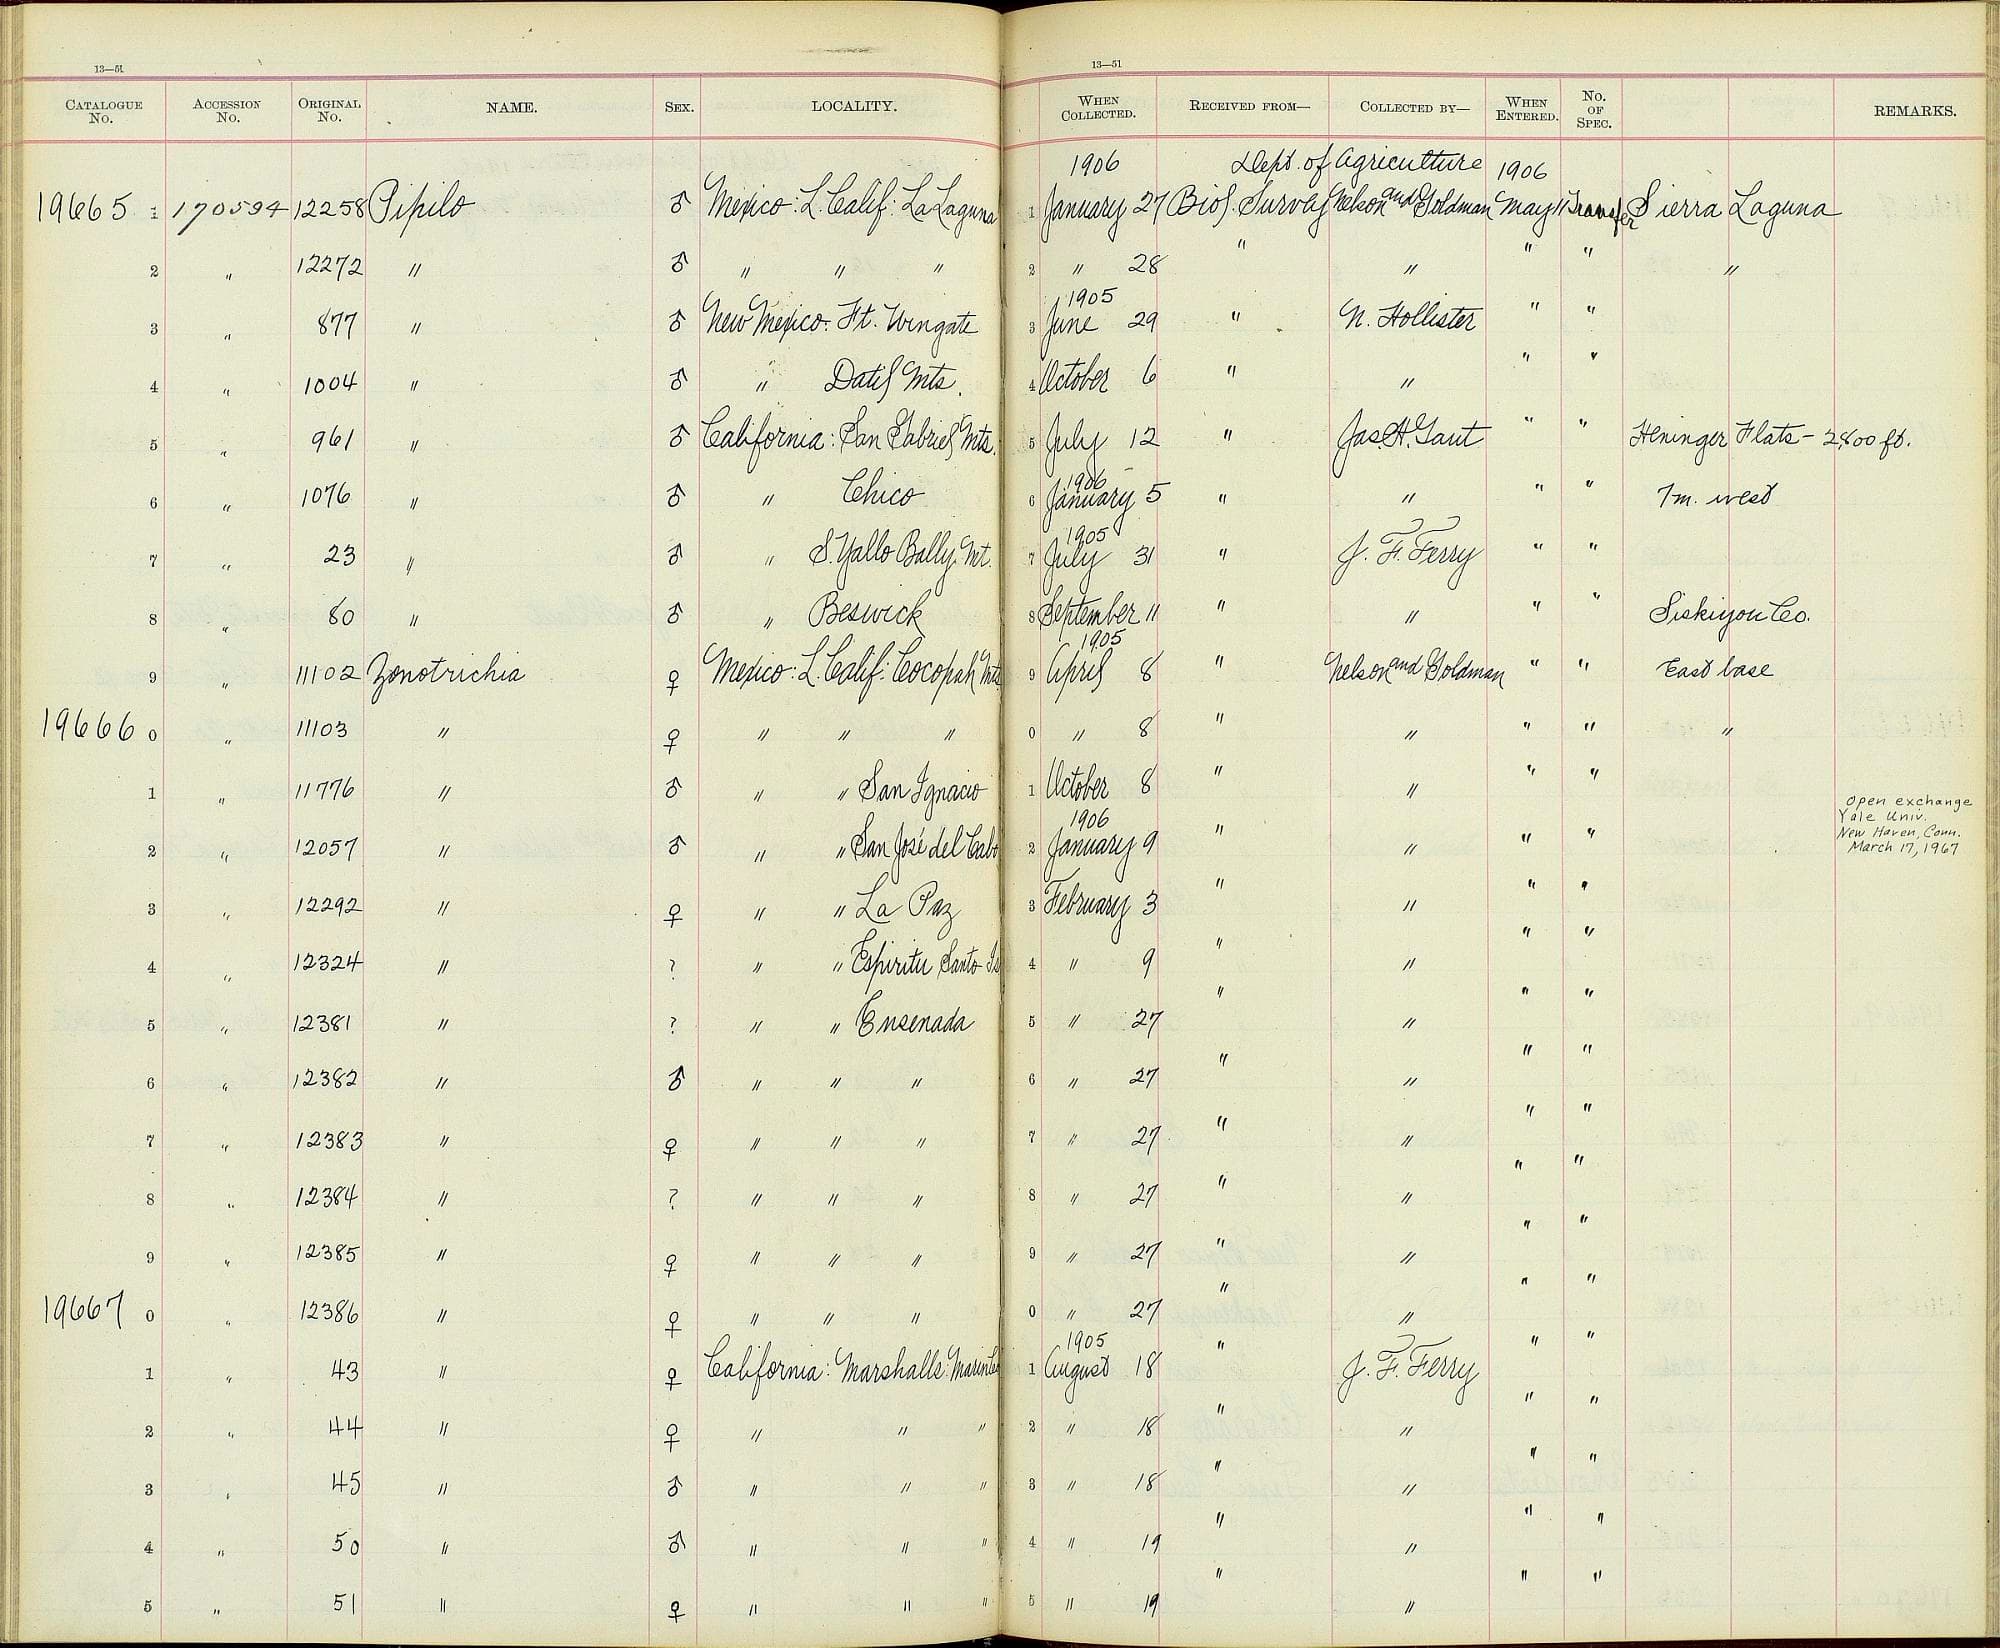 13—51
13—51
CATALOGUE No. ACCESSION No. ORIGINAL No. NAME. SEX. LOCALITY. WHEN COLLECTED. RECEIVED FROM— COLLECTED BY— WHEN ENTERED. No. OF SPEC. REMARKS.
1906 Dept. of Agriculture 1906
19665 1 170594 12258 Pipilo ♂ Mexico: L. Calif: La Laguna 1 January 27 Biol. Survey Nelson and Goldman May 11 Transfer Sierra Laguna
2 " 12272 " ♂ " " " 2 " 28 " " " " "
1905
3 " 877 " ♂ New Mexico: Ft. Wingate 3 June 29 " N. Hollister " "
4 " 1004 " ♂ " Datil Mts. 4 October 6 " " " "
5 " 961 " ♂ California: San Gabriel Mts. 5 July 12 " Jas. H. Gaut " " Heninger Flats – 2800 ft.
1906
6 " 1076 " ♂ " Chico 6 January 5 " " " " 7m. west
1905
7 " 23 " ♂ " S. Yallo Bally Mt. 7 July 31 " J. F. Ferry " "
8 " 80 " ♂ " Beswick 8 September 11 " " " " Siskiyou Co.
1905
9 " 11102 Zonotrichia ♀ Mexico: L. Calif: Cocopah Mts 9 April 8 " Nelson and Goldman " " East base
19666 0 " 11103 " ♀ " " " 0 " 8 " " " " "
1 " 11776 " ♂ " " San Ignacio 1 October 8 " " " "
Open exchange
Yale Univ.
New Haven, Conn.
March 17, 1967
1906
2 " 12057 " ♂ " " San José del Cabo 2 January 9 " " " "
3 " 12292 " ♀ " " La Paz 3 February 3 " " " "
4 " 12324 " ? " " Espiritu Santo Is 4 " 9 " " " "
5 " 12381 " ? " " Ensenada 5 " 27 " " " "
6 " 12382 " ♂ " " " 6 " 27 " " " "
7 " 12383 " ♀ " " " 7 " 27 " " " "
8 " 12384 " ? " " " 8 " 27 " " " "
9 " 12385 " ♀ " " " 9 " 27 " " " "
19667 0 " 12386 " ♀ " " " 0 " 27 " " " "
1905
1 " 43 " ♀ California: Marshalls: Marin Co 1 August 18 " J. F. Ferry " "
2 " 44 " ♀ " " " 2 " 18 " " " "
3 " 45 " ♂ " " " 3 " 18 " " " "
4 " 50 " ♂ " " " 4 " 19 " " " "
5 " 51 " ♀ " " " 5 " 19 " " " "